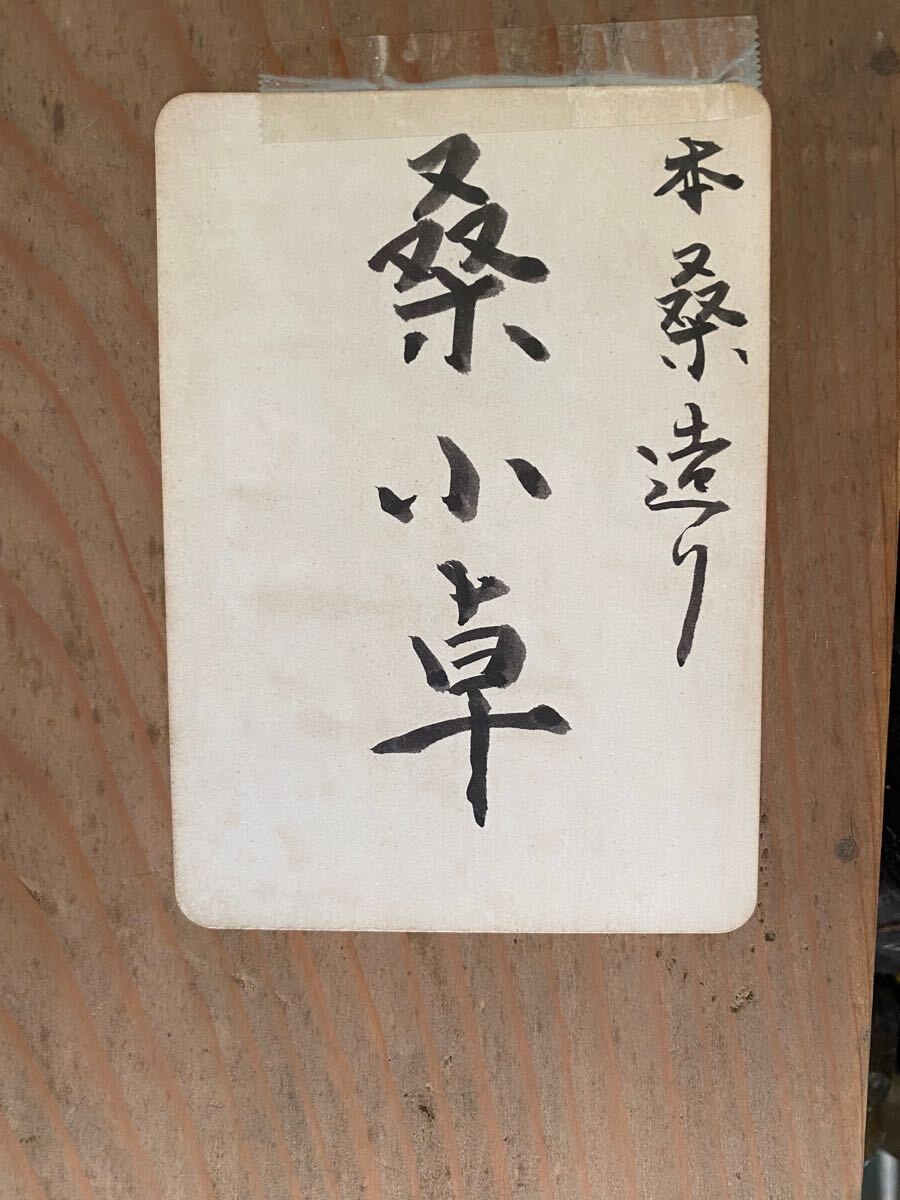 本桑造り
桑小卓